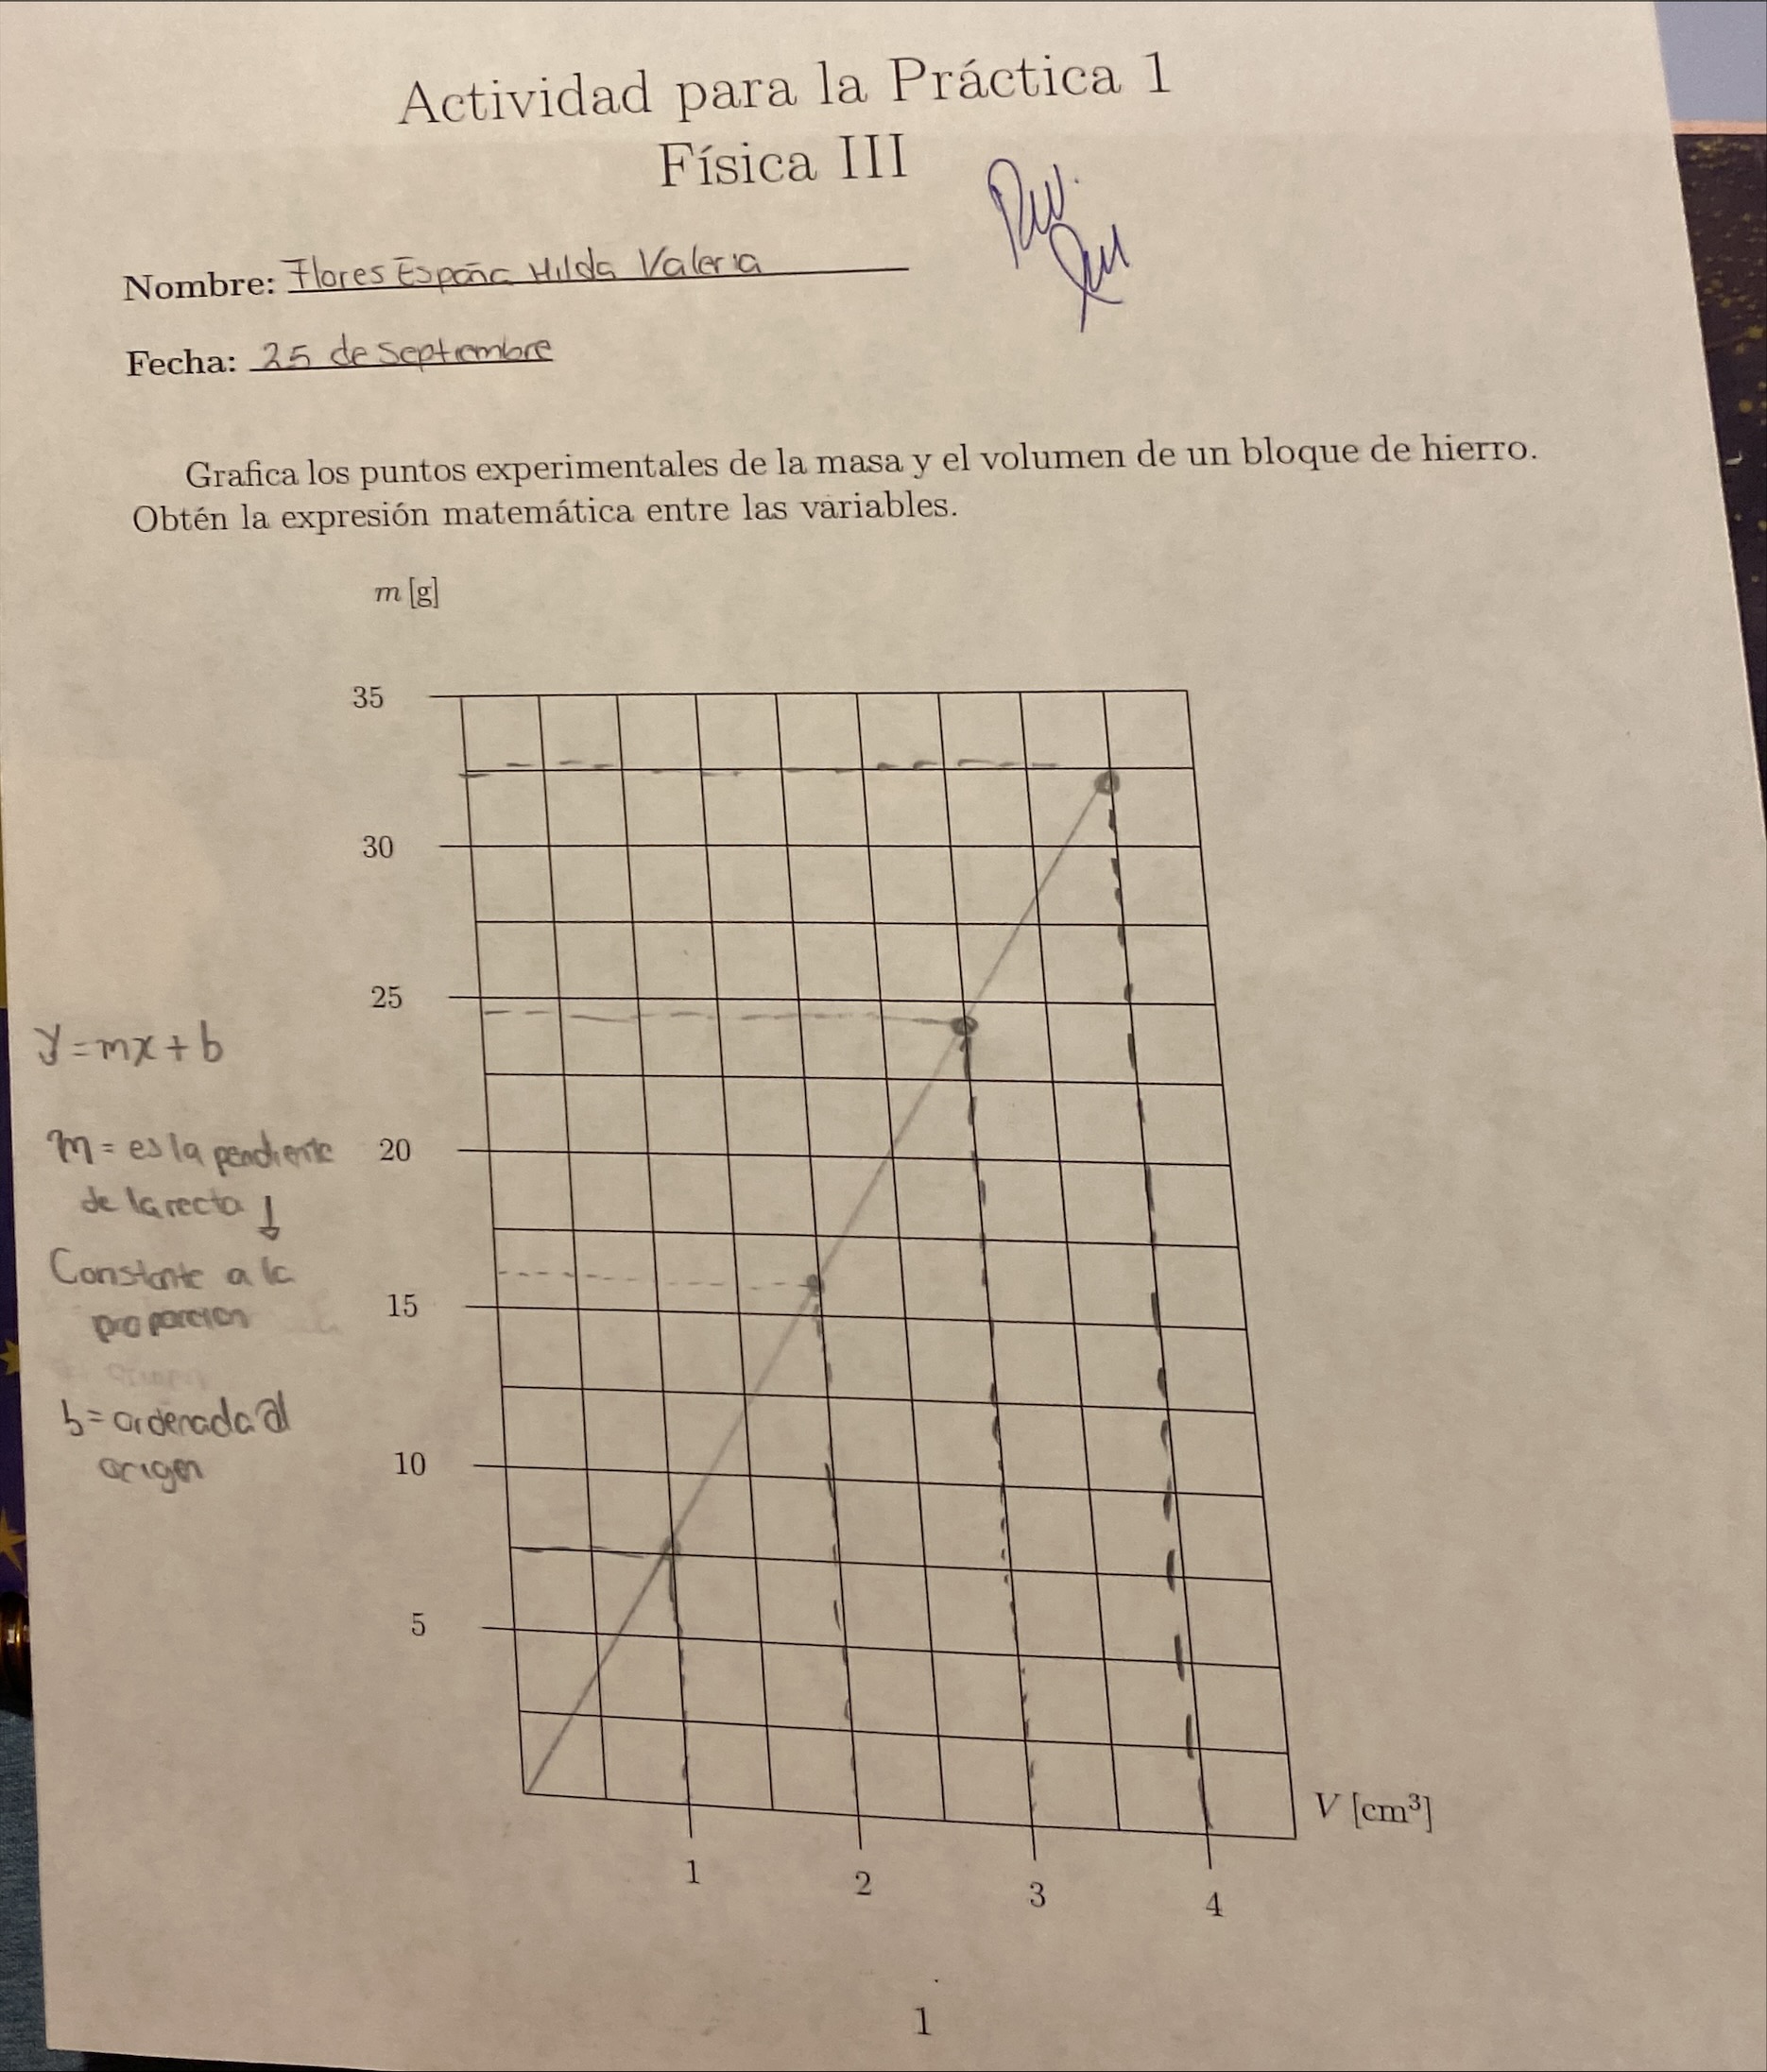 Actividad para la Práctica 1
Física III
Nombre: Flores España Hilda Valeria
Fecha: 25 de Septiembre
Grafica los puntos experimentales de la masa y el volumen de un bloque de hierro.
Obtén la expresión matemática entre las variables.
m [g]
35
30
25
y = mx + b
20
m = es la pendiente
de la recta ↓
Constante a la
proporcion
15
b = ordenada al
origen
10
5
V [cm³]
1
2
3
4
1